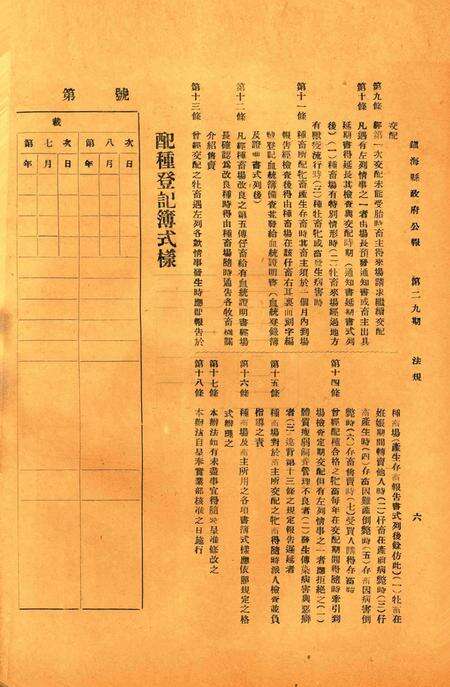 鎮海縣政府公報　第二九期　法規　六
交配
第九條　經第一次交配未能受胎時畜主得來場請求繼續交配
第十條　凡遇有左列情事之一者由場長預發通知書或畜主出具
延期書得延長其檢查與交配時期（通知書延期書式列
後）（一）種畜場有特別情形時（二）牡畜來場經過地方
有獸疫流行時（三）種牡畜牝或畜發生病害時
第十一條　種畜所配牝畜產生存畜時其畜主須於一個月內到場
報告經檢查後得由種畜場在該仔畜右耳裏面刻字編
號登記血統簿備查並發給血統證明書（血統登錄簿
及證明書式列後）
第十二條　凡經種畜場改良之第五傳仔畜給有血統證明書經場
長確認為改良種時得由種畜場隨時通告各牧畜機關
介紹售賣
第十三條　曾經交配之牡畜遇左列各款情事發生時應即報告於
種畜場（產生存畜報告書式列後餘仿此）（一）牡畜在
妊娠期間轉賣他人時（二）仔畜在產前病斃時（三）仔
畜產生時（四）存畜因難產倒斃時（五）存畜因病害倒
斃時（六）存畜轉賣時（七）受買人購得存畜時
第十四條　曾經配種合格之牝畜每年在交配期間得隨時牽引到
場檢查定期交配但有左列情事之一者應拒絕之（一）
體質瘦弱飼養管理不良者（二）發生傳染病害與惡癖
者（三）違背第十三條之規定報告遲延者
第十五條　種畜場對於畜主所交配之牝畜得隨時派人檢查並負
指導之責
第十六條　種畜場及畜主所用之各項書簿式樣應依照規定之格
式辦理之
第十七條　本辦法如有未盡事宜得隨時呈准修改之
第十八條　本辦法自呈奉實業部核准之日施行
配種登記簿式樣
第　號
載
第七次　第八次
年月日　年月日